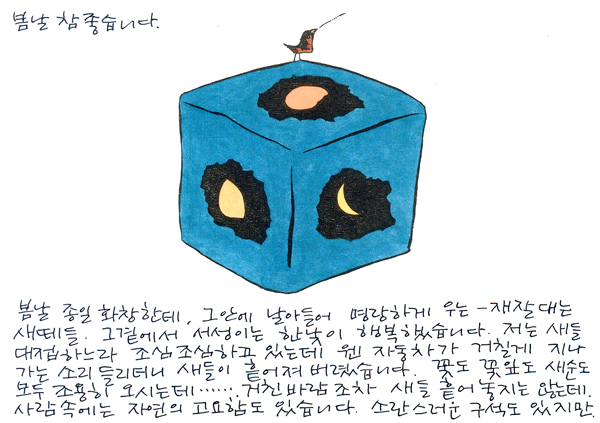 봄날 참 좋습니다.
봄날 종일 화창한데, 그안에 날아들어 명랑하게 우는-재잘대는
새떼들. 그곁에서 서성이는 한낮이 행복했습니다. 저는 새들
대접하느라 조심조심하고 있는데 웬 자동차가 거칠게 지나
가는 소리 들리더니 새들이 흩어져 버렸습니다. 꽃도 꽃잎도 새순도
모두 조용히 오시는데…… 거친 바람조차 새들 흩어 놓지는 않는데.
사람속에는 자연의 고요함도 있습니다. 소란스러운 구석도 있지만.